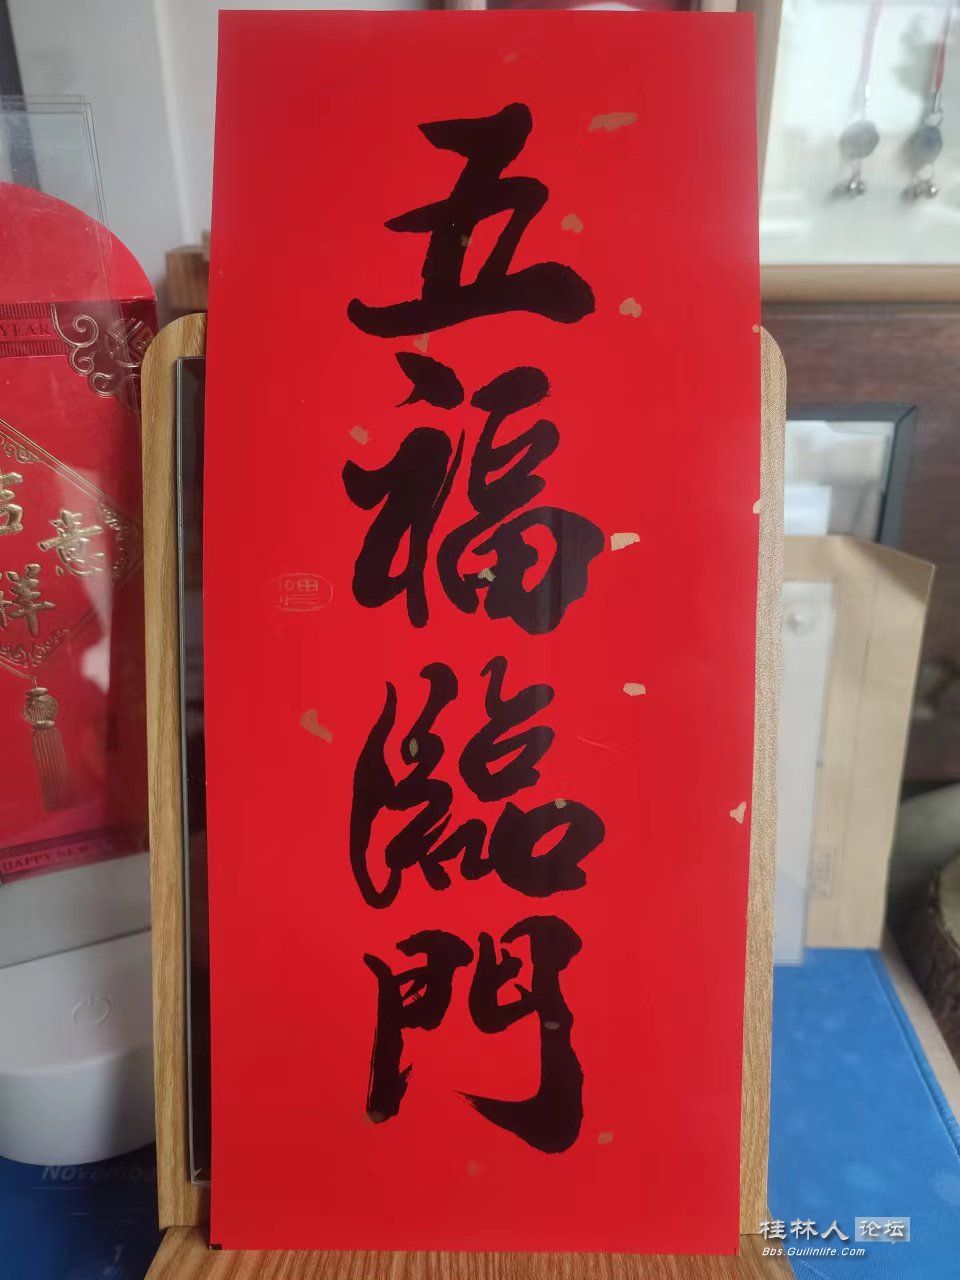 五福臨門
YEAR
吉
祥
意
HAPPY NEW
桂林人论坛
Bbs.Guilinlife.Com